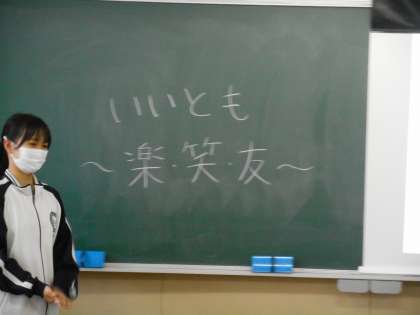 いいいとも
～楽・笑・友～